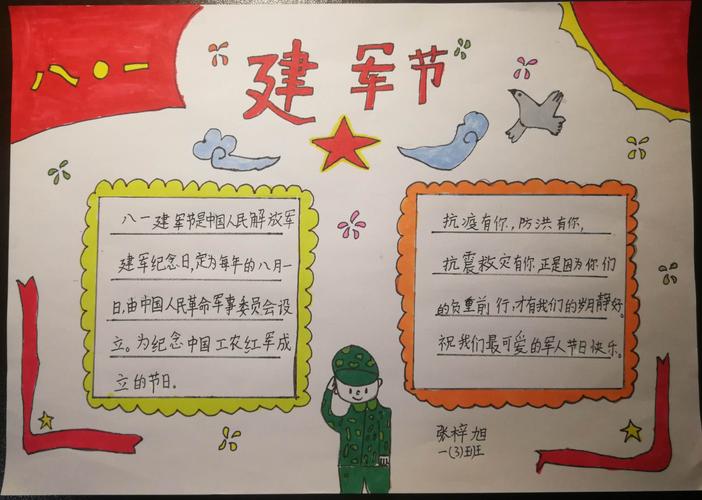 八·一
"建军节"
八一建军节是中国人民解放军
建军纪念日,定为每年的八月一
日,由中国人民革命军事委员会设
立。为纪念中国工农红军成
立的节日。
抗疫有你,防洪有你,
抗震救灾有你正是因为你们
的负重前行,才有我们的岁月静好。
祝我们最可爱的军人节日快乐。
张梓旭
一(3)班